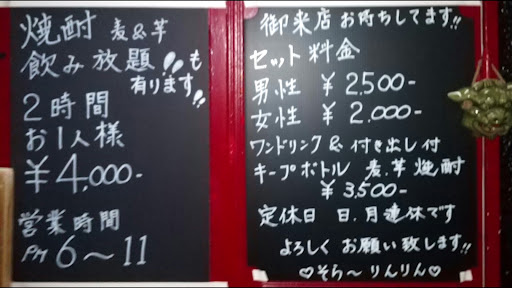 焼酎 麦&芋
飲み放題!!も
有ります!!
2時間
お1人様
¥4,000-
営業時間
PM 6〜11
御来店お待ちしてます!!
セット料金
男性 ¥2,500-
女性 ¥2,000-
ワンドリンク&付き出し付
キープボトル 麦.芋焼酎
¥3,500-
定休日 日.月連休です
よろしくお願い致します!!
♡そら〜りんりん♡